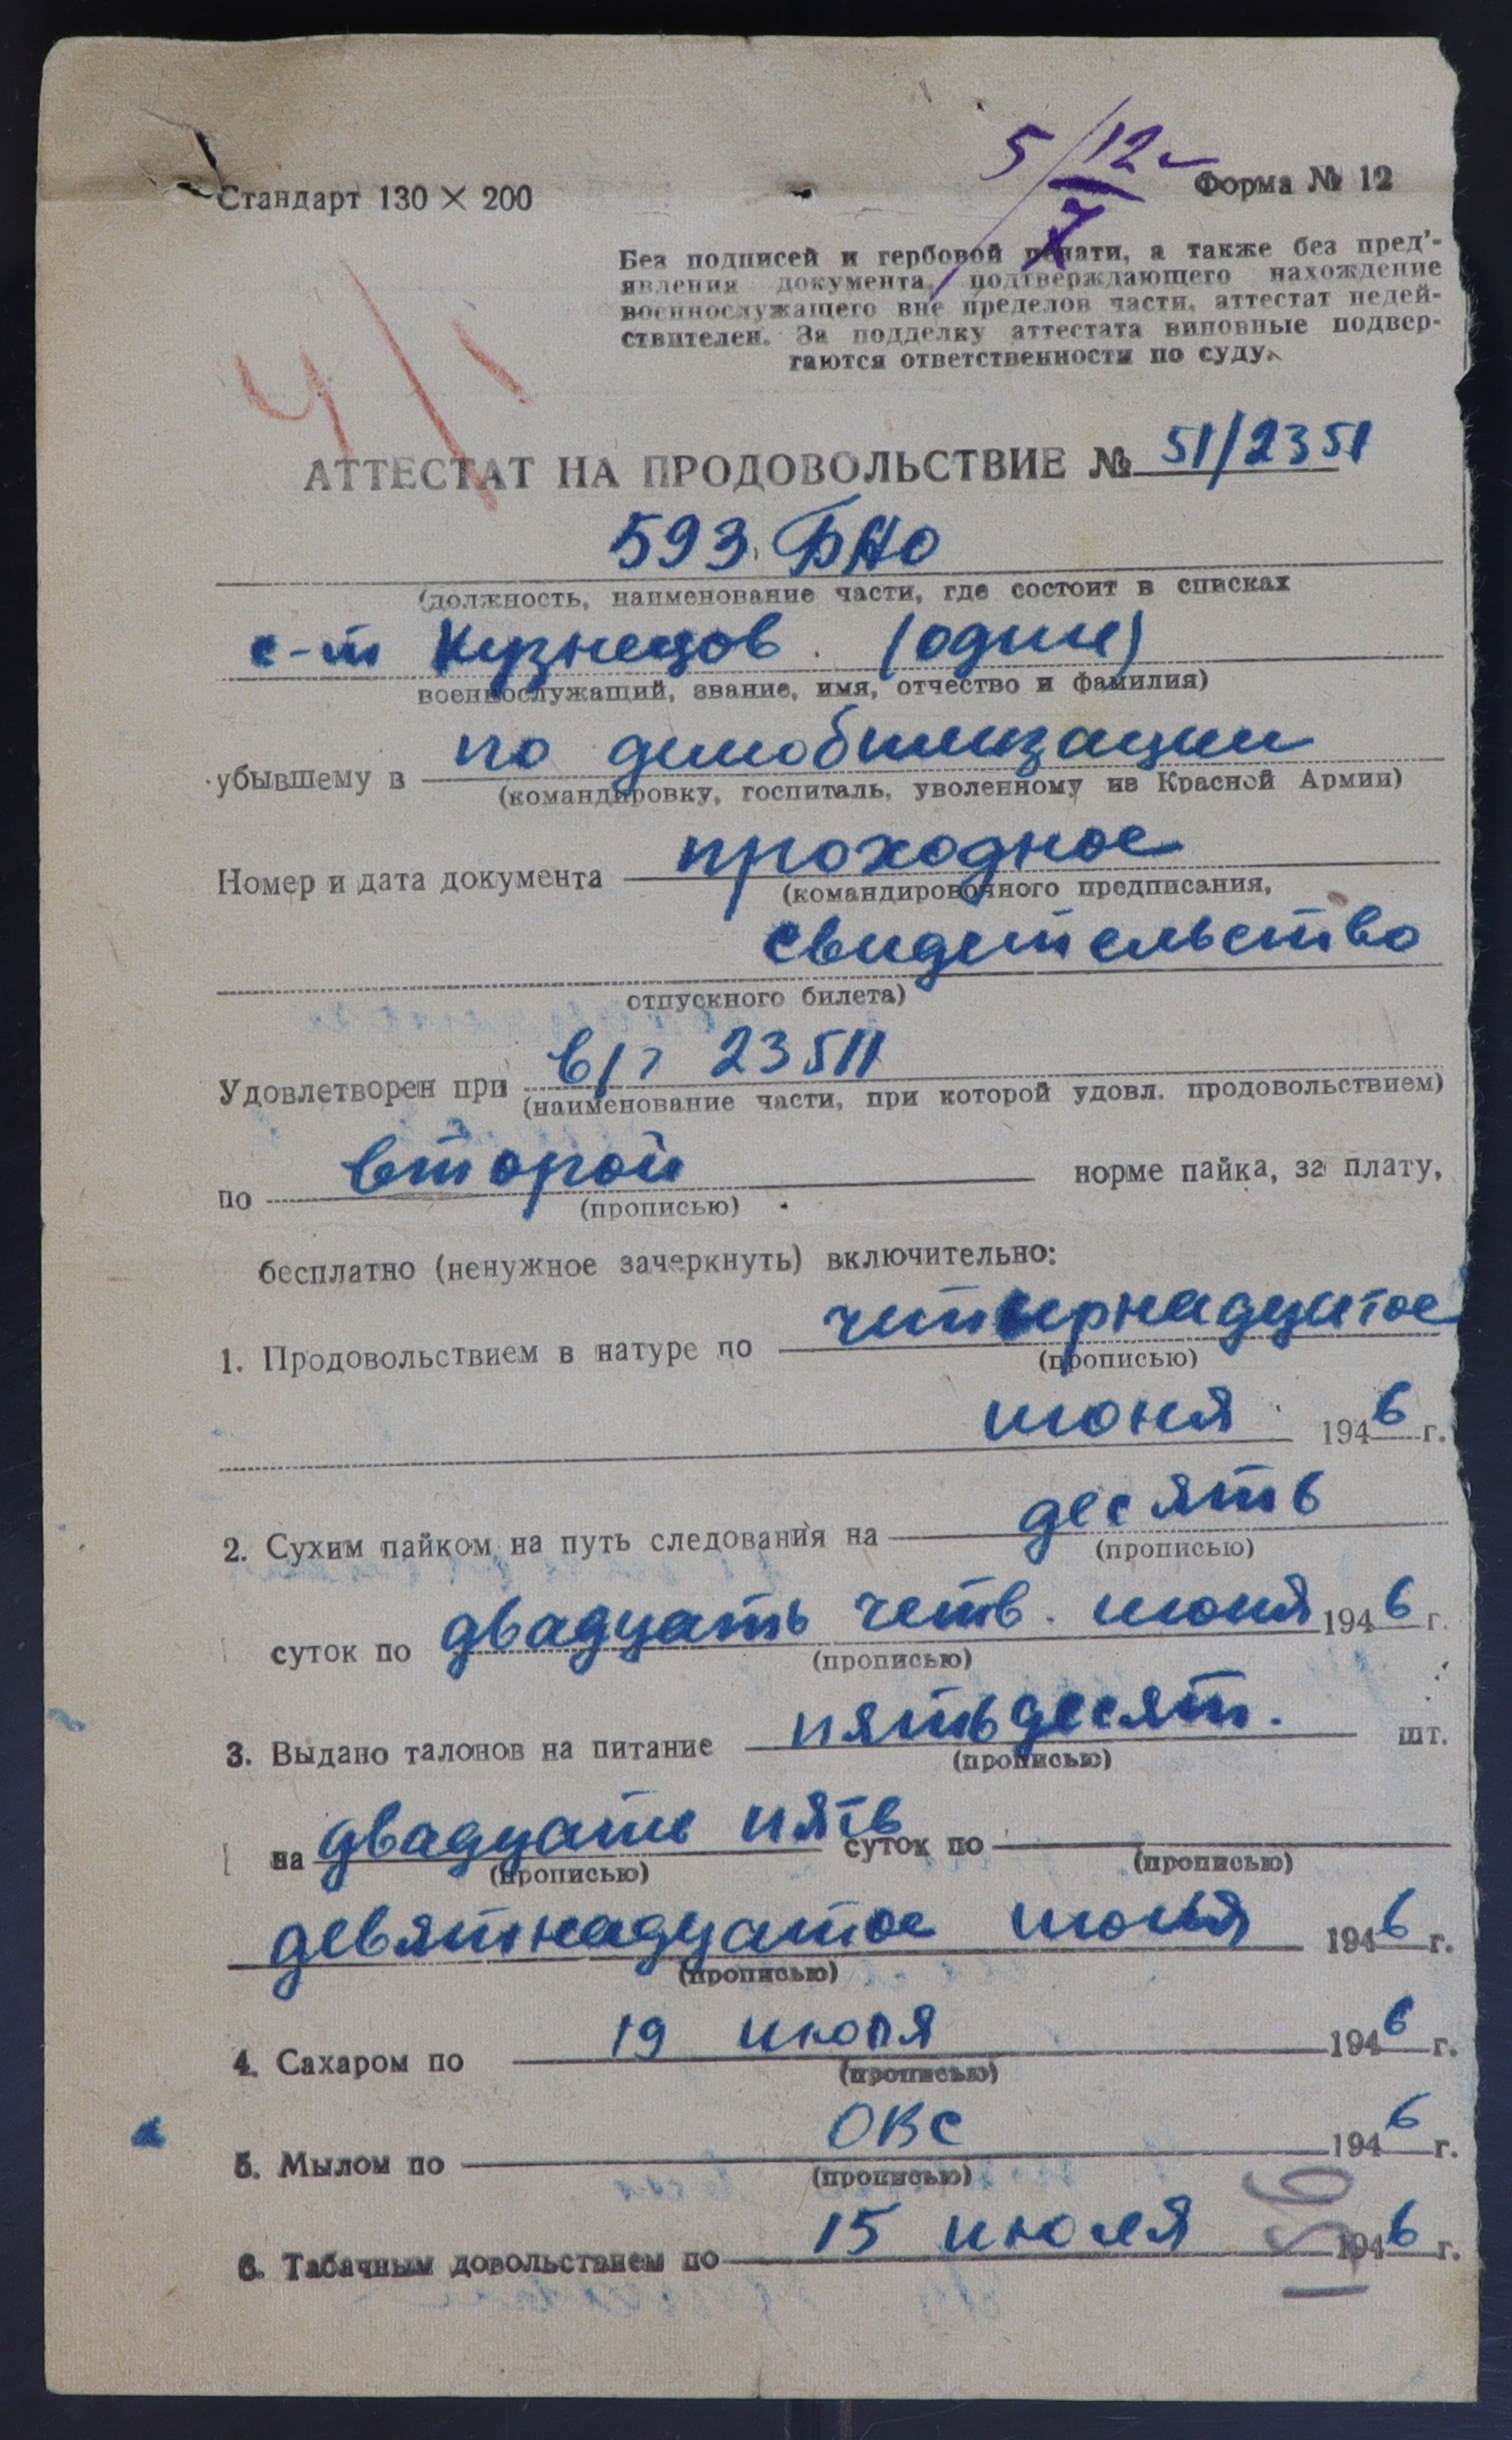 5/12
7
Стандарт 130 × 200
Форма № 12
Без подписей и гербовой печати, а также без пред'-
явления документа, подтверждающего нахождение
военнослужащего вне пределов части, аттестат недей-
ствителен. За подделку аттестата виновные подвер-
гаются ответственности по суду.
АТТЕСТАТ НА ПРОДОВОЛЬСТВИЕ № 51/2351
593 БАО
(должность, наименование части, где состоит в списках
с-т Кузнецов (один)
военнослужащий, звание, имя, отчество и фамилия)
убывшему в по демобилизации
(командировку, госпиталь, уволенному из Красной Армии)
Номер и дата документа проходное
(командировочного предписания,
свидетельство
отпускного билета)
Удовлетворен при 23511
(наименование части, при которой удовл. продовольствием)
по второй норме пайка, за плату,
(прописью)
бесплатно (ненужное зачеркнуть) включительно:
1. Продовольствием в натуре по четырнадцатое
(прописью)
июня 1946 г.
2. Сухим пайком на путь следования на десять
(прописью)
суток по двадцать четв. июня 1946 г.
(прописью)
3. Выдано талонов на питание пятьдесят. шт.
(прописью)
на двадцать пять суток по
(прописью) (прописью)
девятнадцатое июля 1946 г.
(прописью)
4. Сахаром по 19 июля 1946 г.
(прописью)
5. Мылом по ОВС 1946 г.
(прописью)
6. Табачным довольствием по 15 июля 1946 г.